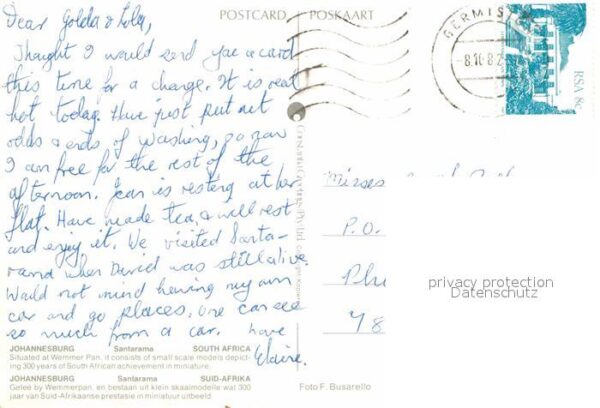 POSTCARD POSKAART
Dear Golda & Lola,
Thought I would send you a card
this time for a change. It is real
hot today. Have just put out
odds & ends of washing, so now
I am free for the rest of the
afternoon. Jean is resting at her
flat. Have made tea & will rest
and enjoy it. We visited Santa-
rama when David was still alive.
Would not mind having my own
car and go places. One can see
so much from a car. Love
Elaine.
JOHANNESBURG Santarama SOUTH AFRICA
Situated at Wemmer Pan, it consists of small scale models depict-
ing 300 years of South African achievement in miniature.
JOHANNESBURG Santarama SUID-AFRIKA
Geleë by Wemmerpan, en bestaan uit klein skaaimodelle wat 300
jaar van Suid-Afrikaanse prestasie in miniatuur uitbeeld
GERMIS
-8.16-8.2
RSA 8c
P.O.
Phi
78
privacy protection
Datenschutz
Foto F. Busarello